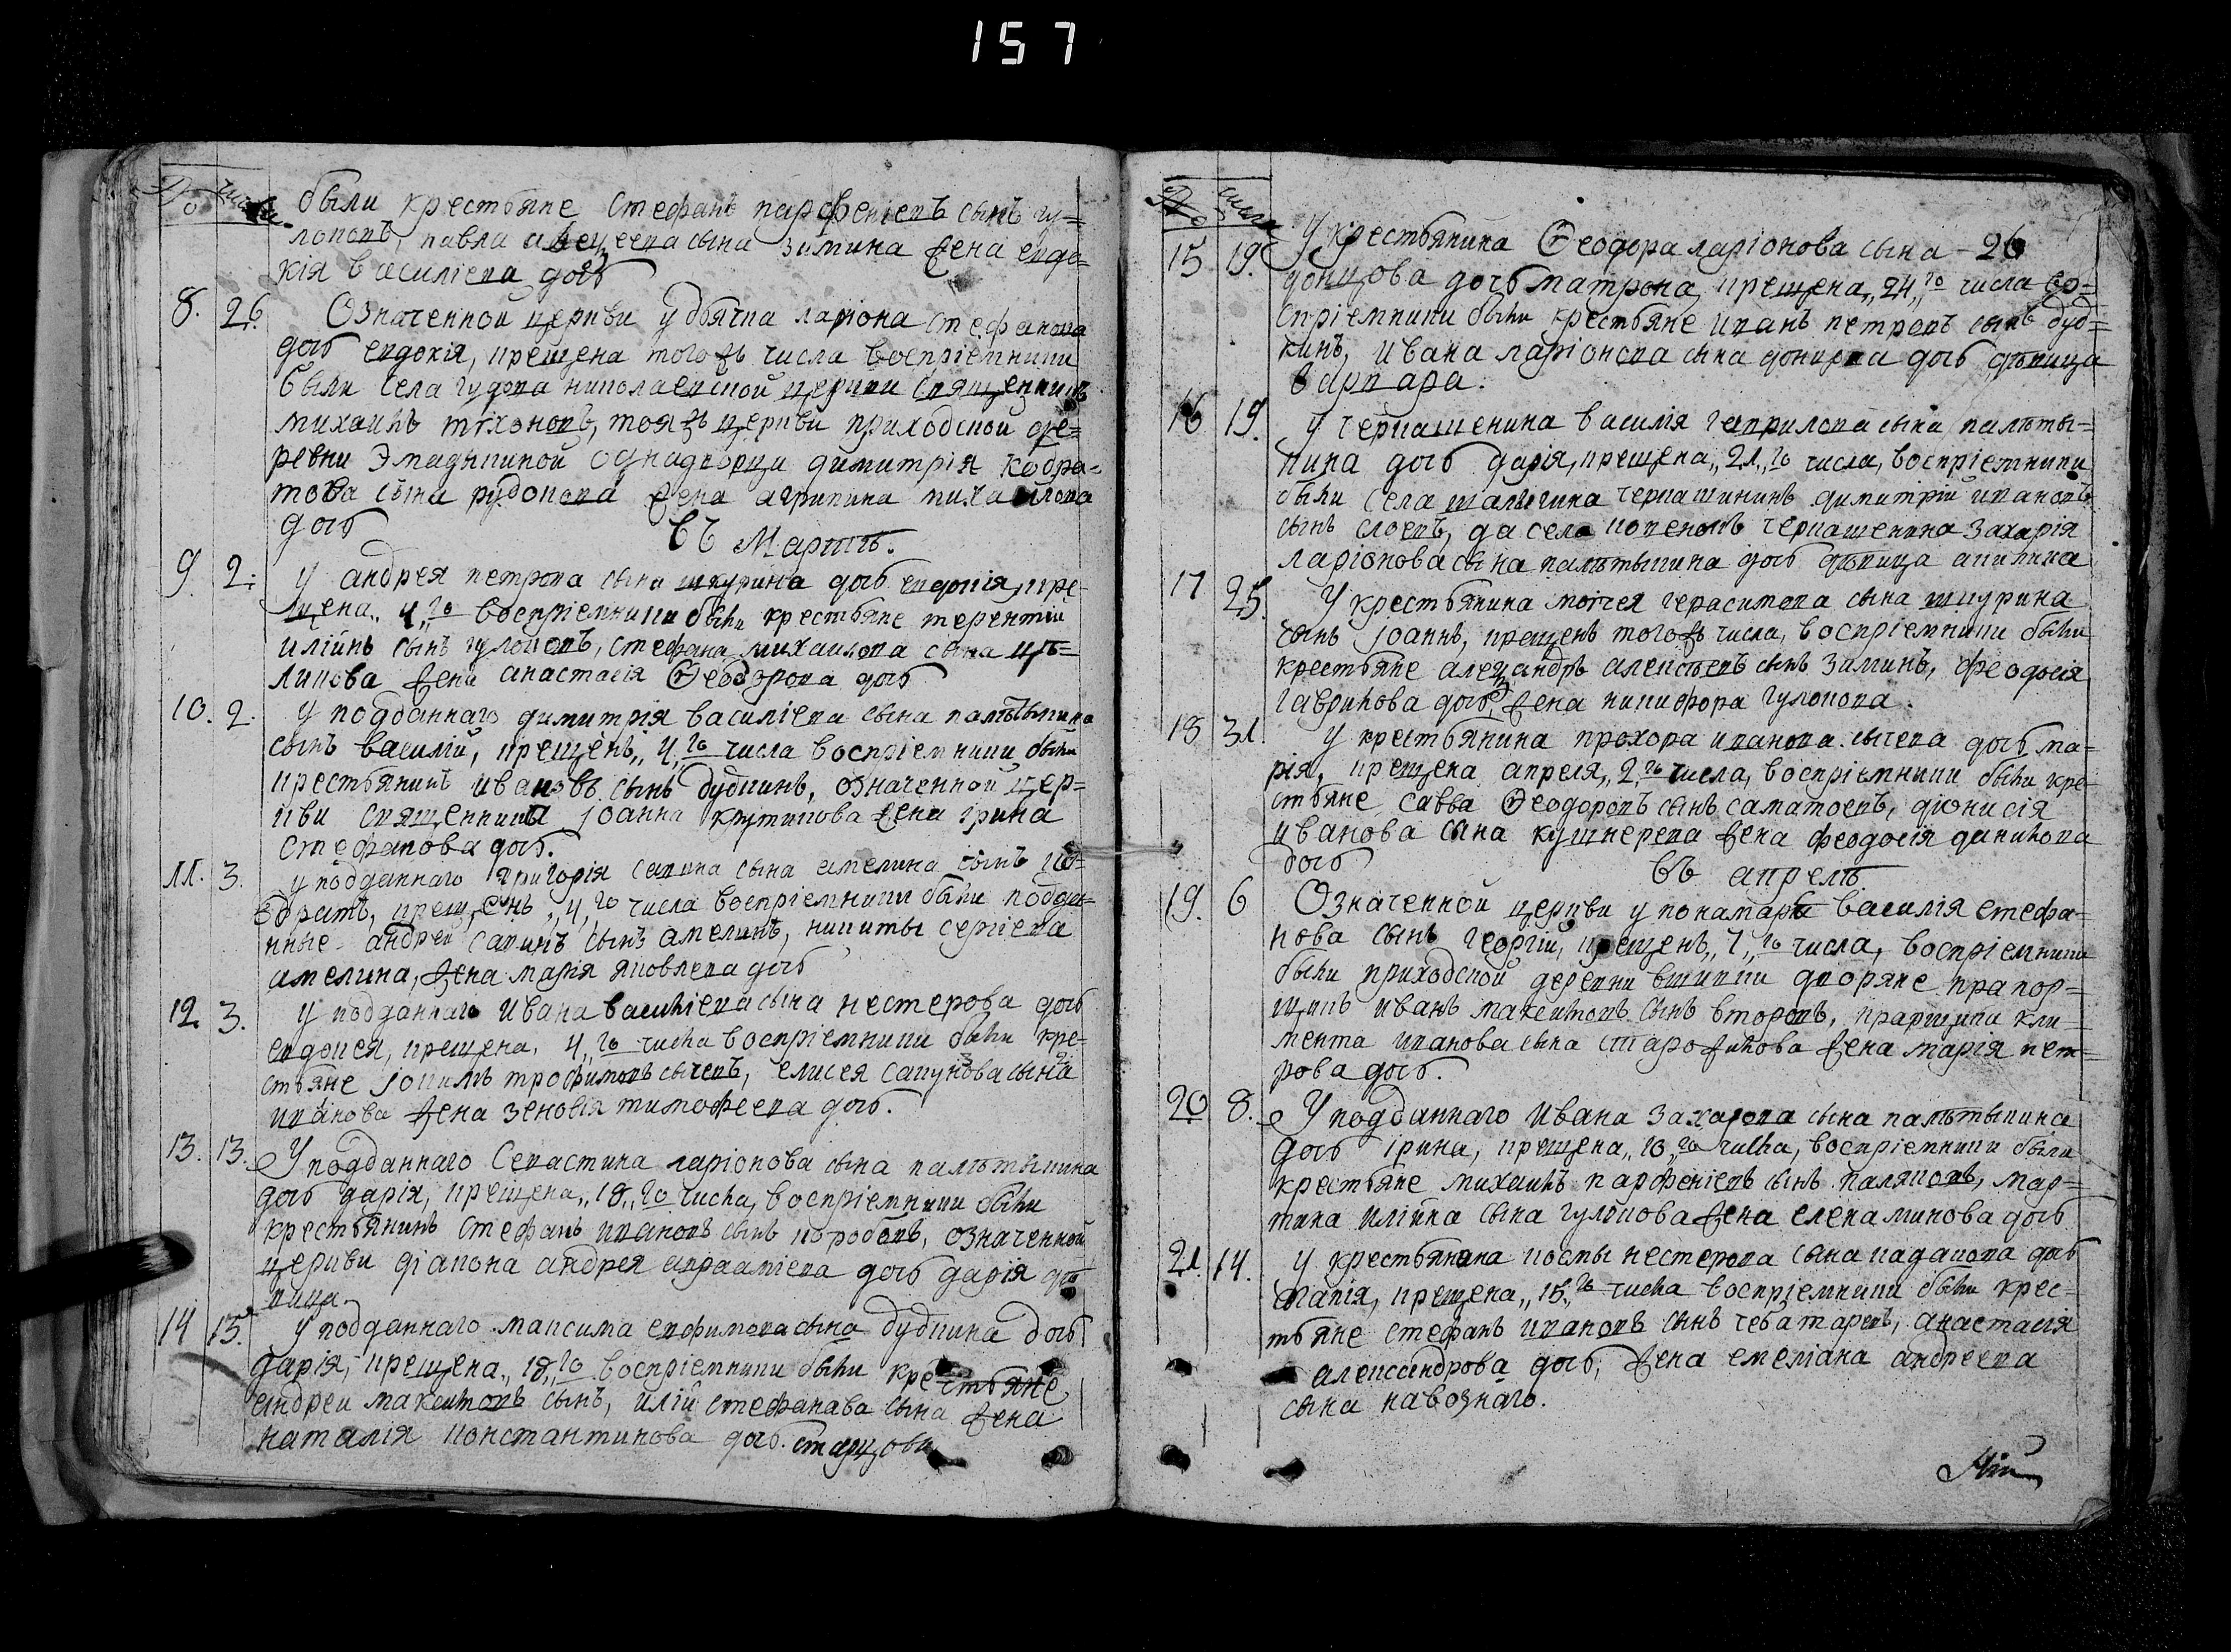 157
№ числа
были крестьяне Стефанъ парфеніевъ сынъ гу=
лоповъ, павла алексеева сына зимина жена евдо=
кія василіева дочь
8. 26. Означенной церкви у дьячка ларіона стефанова
дочь евдокія, крещена тогожъ числа воспріемники
были села гудова николаевской церкви священникъ
михаилъ тихоновъ, тояжъ церкви приходской де=
ревни Эмадыкиной однадворца димитрія кодра=
това сына рудокова жена агрипина михаилова
дочь
въ Мартѣ.
9. 2. У андрея петрова сына шкурина дочь евдокія, кре=
щена 4,го воспріемники были крестьяне терентій
иліинъ сынъ гулоповъ, стефана михаилова сына цѣ=
ликова жена анастасія Ѳеодорова дочь
10. 2. У подданнаго димитрія василіева сына палѣтыкина
сынъ василій, крещенъ, 4,го числа воспріемники были
крестьянинъ ивановъ сынъ дудкинъ, означенной цер=
кви священника Іоанна крутикова жена ірина
Стефанова дочь.
11. 3. У подданнаго григорія савина сына амелина сынъ ко=
дратъ, крещенъ, 4,го числа воспріемники были подда=
нные андреи савинъ сынъ амелинъ, никиты сергіева
амелина, жена марія яковлева дочь
12. 3. У подданнаго Ивана василіева сына нестерова дочь
евдокея, крещена, 4,го числа воспріемники были кре=
стьяне Іокимъ трофимовъ сычевъ, елисея сапунова сына
иванова жена зеновія тимофеева дочь.
13. 13. У подданнаго Севастина ларіонова сына палѣтыкина
дочь дарія, крещена, 18,го числа, воспріемники были
крестьянинъ стефанъ ивановъ сынъ коробовъ, означенной
церкви діакона андрея аврааміева дочь дарія дѣ=
вица.
14 15. У подданнаго максима евфимова сына дудкина дочь
дарія, крещена, 18,го воспріемники были крестьяне
андреи максимовъ сынъ, иліи стефанава сына жена
наталія константинова дочь. старцова
№ числа
26
15 19. У крестьянина Ѳеодора ларіонова сына
донцова дочь матрона, крещена, 24,го числа во=
спріемники были крестьяне иванъ петровъ сынъ дуд=
кинъ, ивана ларіонова сына донцова дочь дѣвица
варвара.
16 19. У черкашенина василія гаврилова сына палѣты=
кина дочь дарія, крещена, 21,го числа, воспріемники
были села шалыгина черкашининъ димитріи ивановъ
сынъ слоевъ, да села копенокъ черкашенина захарія
ларіонова сына палѣтыкина дочь дѣвица акилина
17 25. У крестьянина моисея герасимова сына шкурина
сынъ Іоаннъ, крещенъ тогожъ числа, воспріемники были
крестьяне александръ алексѣевъ сынъ зиминъ, феодосія
гаврилова дочь, жена никифора гулопова.
18 31. У крестьянина прохора иванова сычева дочь ма=
рія, крещена апреля, 2,го числа, воспріемники были кре=
стьяне савва Ѳеодоровъ сынъ саматоевъ, діонисія
иванова сына кушнерева жена феодосія данилова
дочь
въ апрелѣ.
19. 6 Означенной церкви у понамаря василія стефа=
нова сынъ георгіи, крещенъ, 7,го числа, воспріемники
были приходской деревни вшивки дворяне прапор=
щикъ иванъ максимовъ сынъ второвъ, праршика кли=
мента иванова сына старожилова жена марія пет=
рова дочь.
20 8. У подданнаго ивана захарова сына палѣтыкина
дочь ірина, крещена, 10,го числа, воспріемники были
крестьяне михаилъ парфеніевъ сынъ паляковъ, мар=
тина иліина сына гулопова жена елена минова дочь
21 14. У крестьянина космы нестерова сына кадакова дочь
агапія, крещена, 15,го числа воспріемники были крес=
тьяне стефанъ ивановъ сынъ чебатаревъ, анастасія
александрова дочь, жена емеліана андреева
сына навознаго.